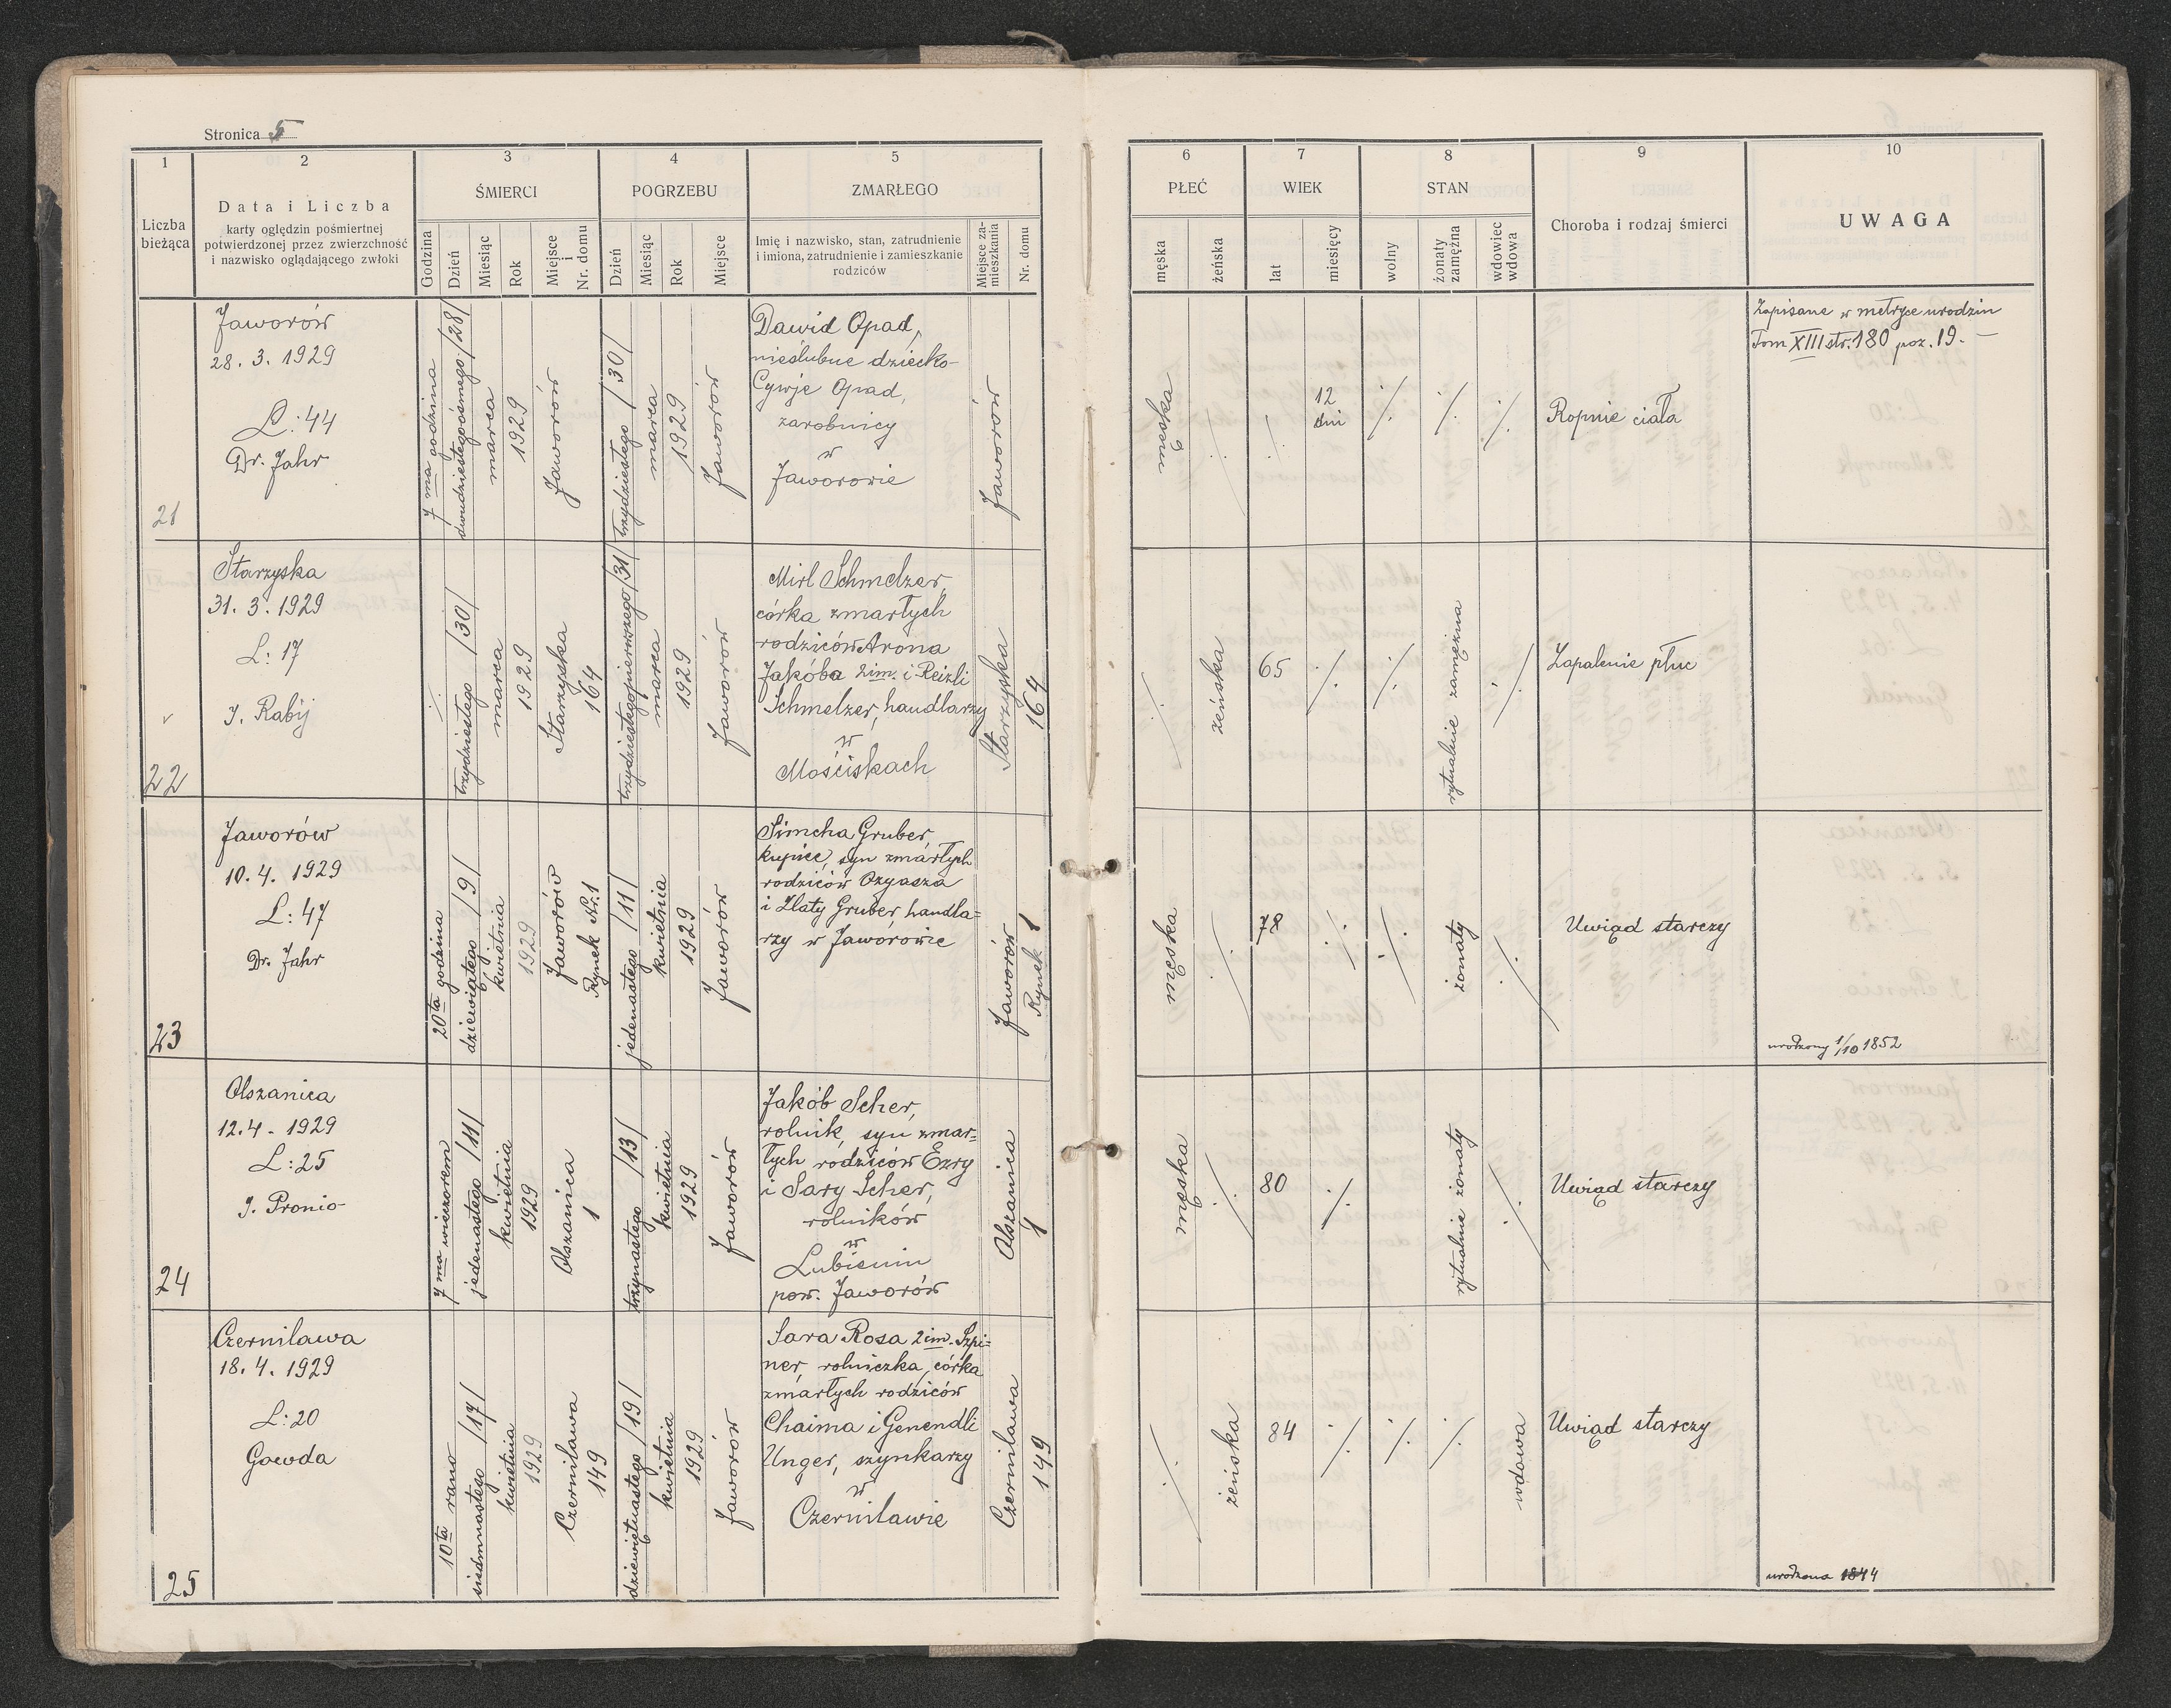 Stronica 5
1 2 3 4 5 6 7 8 9 10
Liczba bieżąca
Data i Liczba
karty oględzin pośmiertnej
potwierdzonej przez zwierzchność
i nazwisko oglądającego zwłoki
ŚMIERCI
Godzina
Dzień
Miesiąc
Rok
Miejsce i Nr. domu
POGRZEBU
Dzień
Miesiąc
Rok
Miejsce
ZMARŁEGO
Imię i nazwisko, stan, zatrudnienie
i imiona, zatrudnienie i zamieszkanie
rodziców
Miejsce za-
mieszkania
Nr. domu
PŁEĆ
męska
żeńska
WIEK
lat
miesięcy
STAN
wolny
żonaty
zamężna
wdowiec
wdowa
Choroba i rodzaj śmierci
UWAGA
21
Jaworów
28. 3. 1929
L: 44
Dr. Jahr
7 ma godzina
dwudziestegoósmego /28/
marca
1929
Jaworów
trzydziestego /30/
marca
1929
Jaworów
Dawid Opad,
nieślubne dziecko
Cywje Opad,
zarobnicy
w
Jaworowie
Jaworów
męska
12
dni
Ropnie ciała
Zapisane w metryce urodzin
Tom XIII str. 180 poz. 19. —
22
Starzyska
31. 3. 1929
L: 17
J. Rabij
trzydziestego /30/
marca
1929
Starzyska
164
trzydziestegopierwszego /31/
marca
1929
Jaworów
Mirl Schmelzer,
córka zmarłych
rodziców Arona
Jakóba 2im. i Reizli
Schmelzer, handlarzy
w
Mościskach
Starzyska
164
żeńska
65
rytualnie zamężna
Zapalenie płuc
23
Jaworów
10. 4. 1929
L: 47
Dr. Jahr
20ta godzina
dziewiątego /9/
kwietnia
1929
Jaworów
Rynek Nr. 1
jedenastego /11/
kwietnia
1929
Jaworów
Simcha Gruber,
kupiec, syn zmarłych
rodziców Ozyasza
i Zlaty Gruber, handla=
rzy w Jaworowie
Jaworów
Rynek 1
męska
78
żonaty
Uwiąd starczy
urodzony 1/10 1852
24
Olszanica
12. 4 - 1929
L: 25
J. Pronio
7 ma wieczorem
jedenastego /11/
kwietnia
1929
Olszanica
1
trzynastego /13/
kwietnia
1929
Jaworów
Jakób Scher,
rolnik, syn zmar=
łych rodziców Ezry
i Sary Scher,
rolników
w
Lubieniu
pow. Jaworów
Olszanica
1
męska
80
rytualnie żonaty
Uwiąd starczy
25
Czernilawa
18. 4. 1929
L: 20
Gowda
10ta rano
siedmnastego /17/
kwietnia
1929
Czernilawa
149
dziewiętnastego /19/
kwietnia
1929
Jaworów
Sara Rosa 2im. Szpi=
ner, rolniczka, córka
zmarłych rodziców
Chaima i Genendli
Unger, szynkarzy
w
Czernilawie
Czernilawa
149
żeńska
84
wdowa
Uwiąd starczy
urodzona 1844